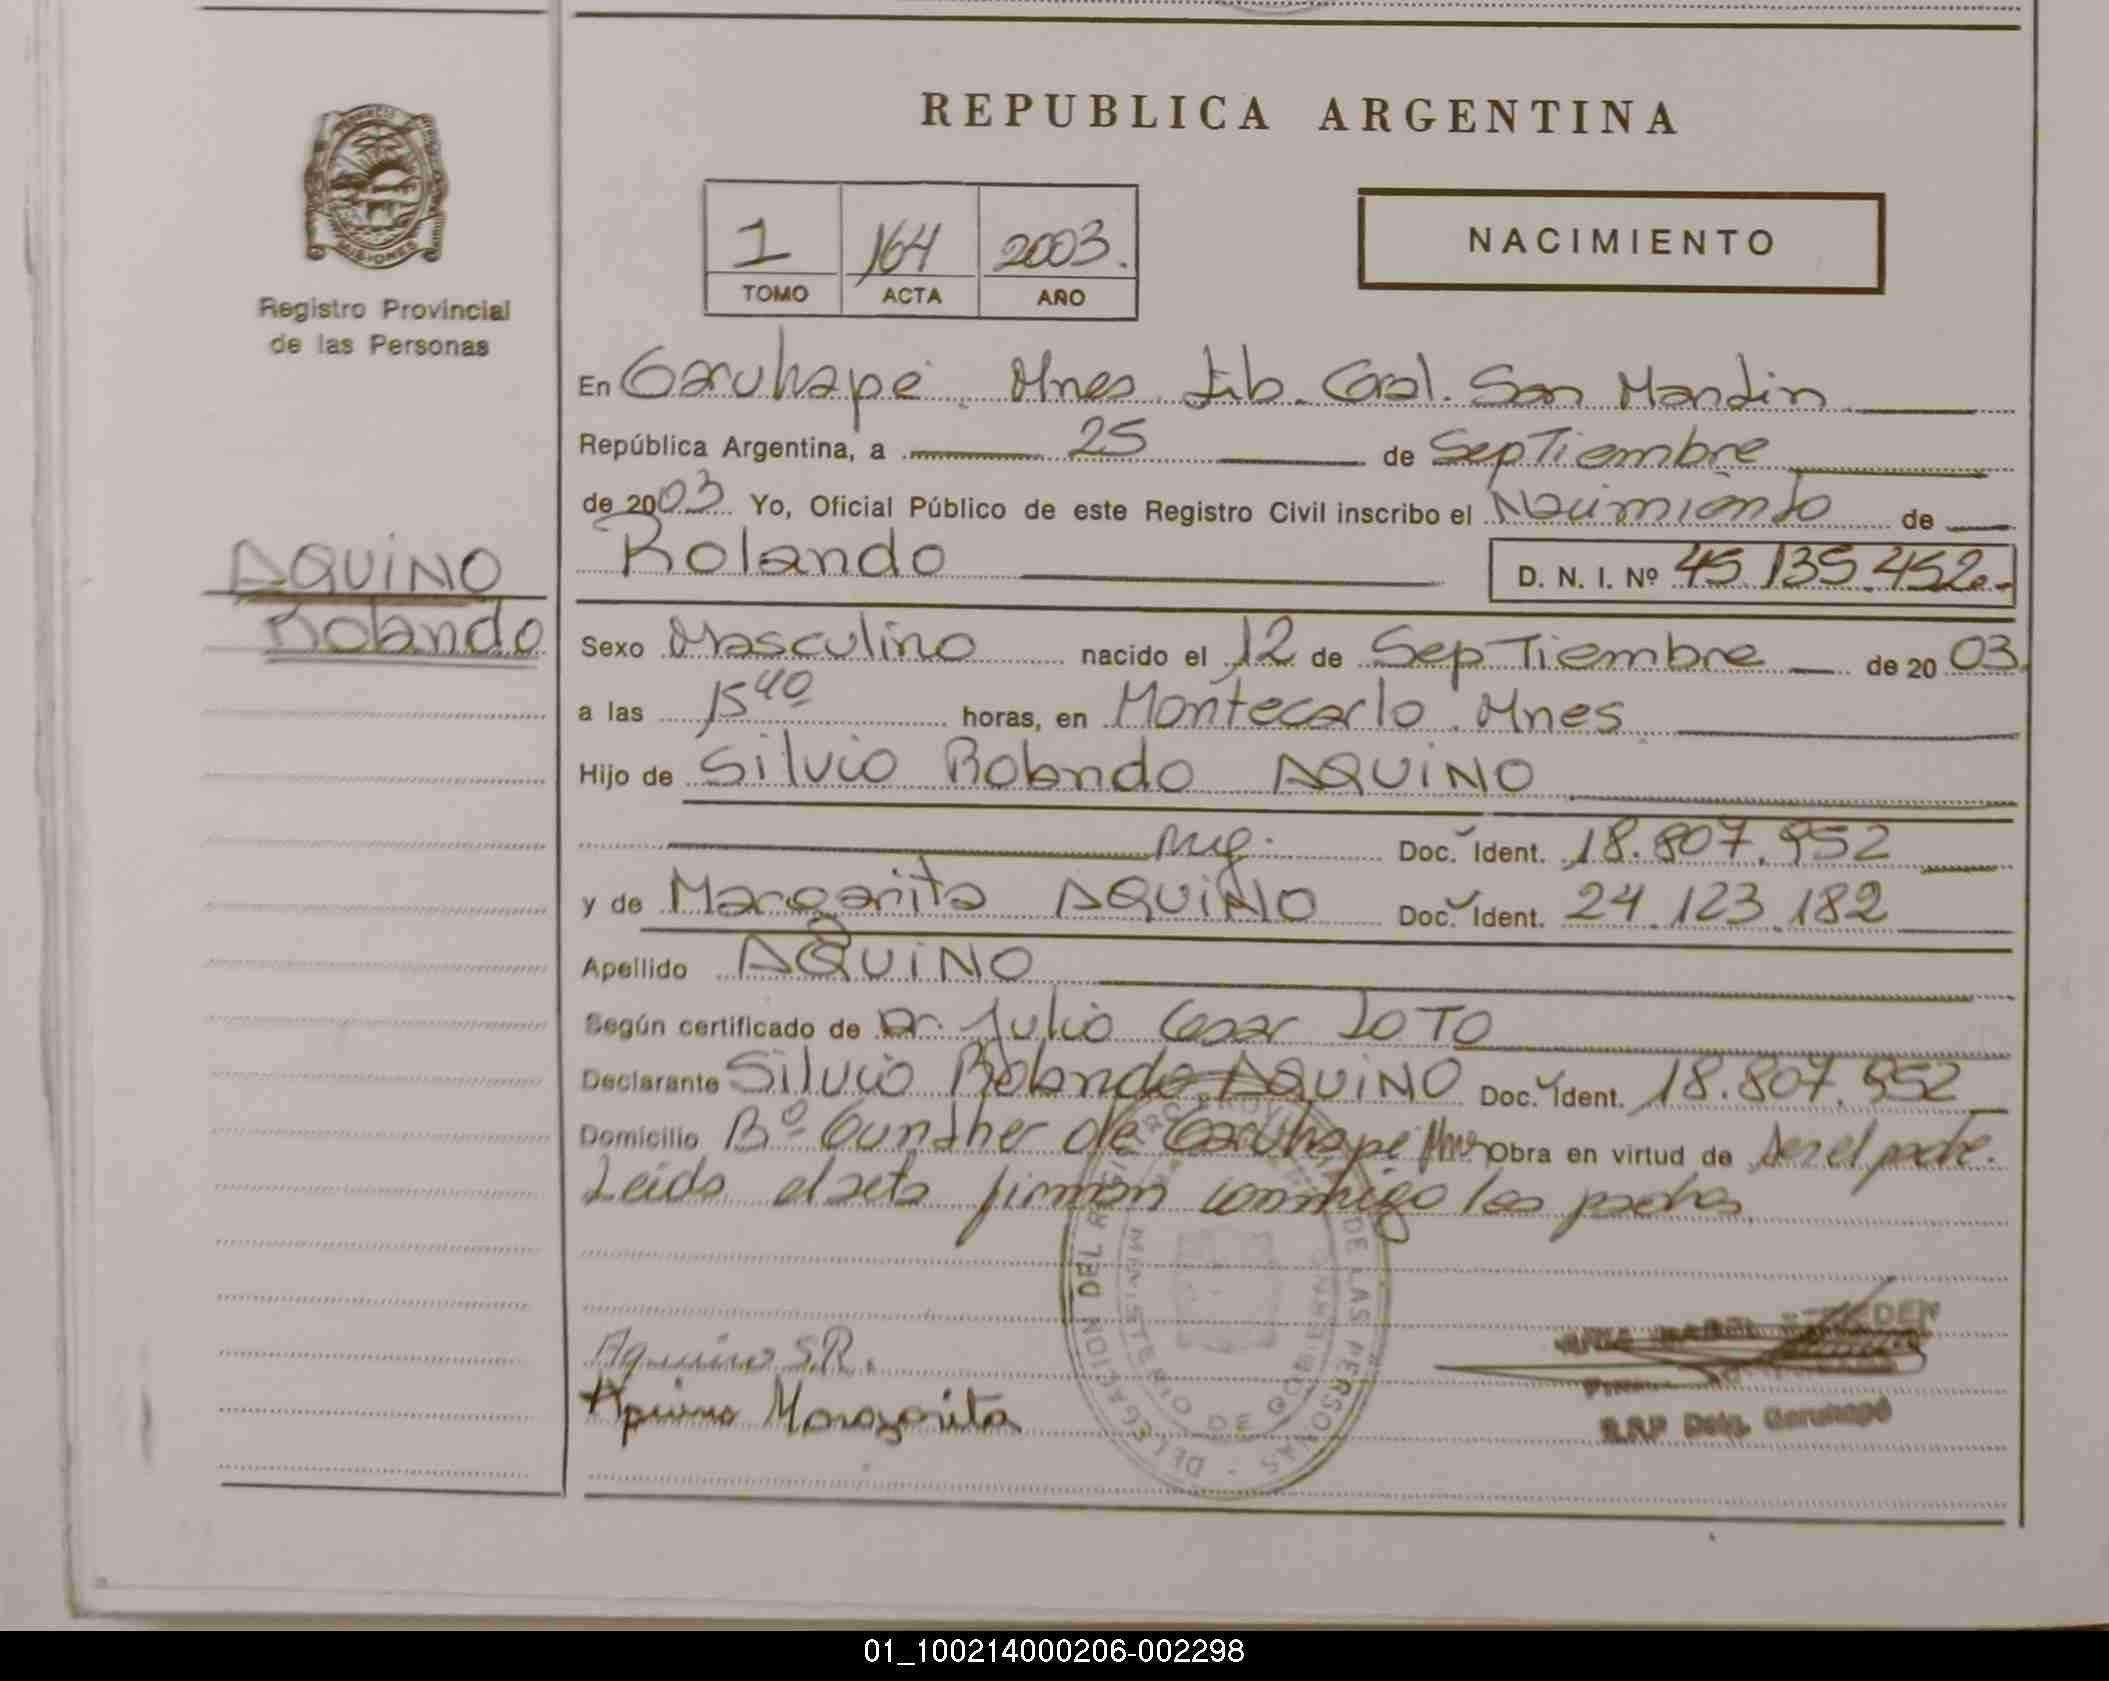 REPUBLICA ARGENTINA
1 164 2003.
TOMO ACTA AÑO
NACIMIENTO
MISIONES
Registro Provincial
de las Personas
AQUINO
Rolando
En Garuhapé. Mnes. Lib. Gral. San Martin
República Argentina, a 25 de Septiembre
de 2003 Yo, Oficial Público de este Registro Civil inscribo el Nacimiento de
Rolando D. N. I. Nº 45.135.452.-
Sexo Masculino nacido el 12 de Septiembre de 20 03.
a las 15 40 horas, en Montecarlo. Mnes
Hijo de Silvio Rolando AQUINO
Arg. Doc. Ident. 18.807.952
y de Margarita AQUINO Doc. Ident. 24.123.182
Apellido AQUINO
Según certificado de Dr. Julio Cesar SOTO
Declarante Silvio Rolando AQUINO Doc. Ident. 18.807.952
Domicilio Bº Gunther de Garuhapé Mnes Obra en virtud de ser el padre.
Leida el acta firman conmigo los padres
DELEGACION DEL REGISTRO PROVINCIAL DE LAS PERSONAS -
MINISTERIO DE GOBIERNO
Aquino S.R.
Aquino Margarita
R.R.P Deleg. Garuhapé
01_100214000206-002298